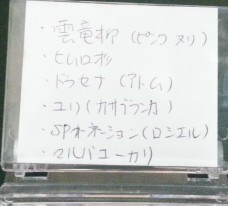 ・雲竜柳(ピンク ヌリ)
・ヒムロ杉
・ドラセナ(アトム)
・ユリ(カサブランカ)
・SPカーネーション(ロニエル)
・マルバユーカリ